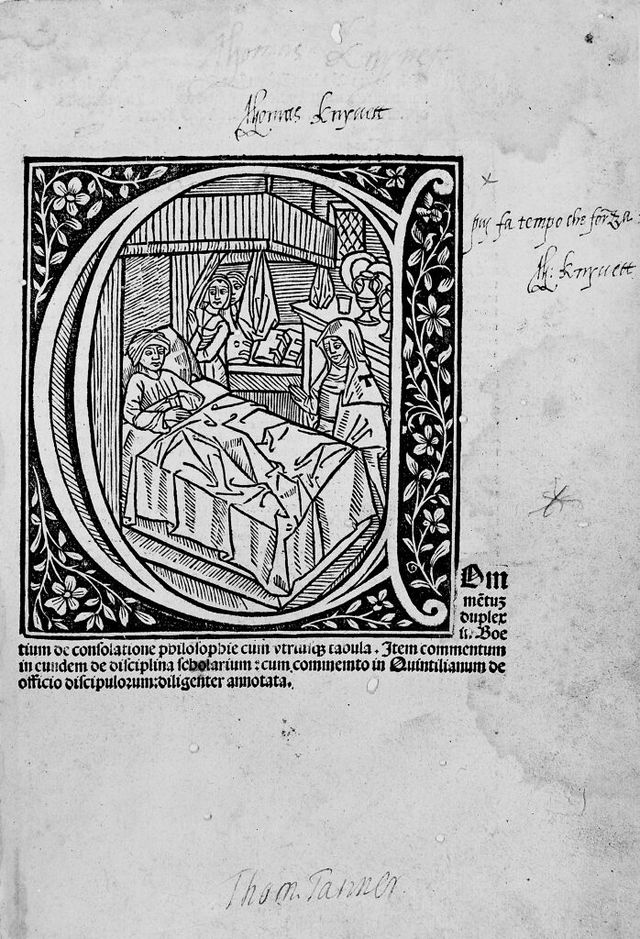 Thomas Knyvett
Thomas Knyvett
piu fa tempo che forza:
Th: Knyvett
C
Om
mētuʒ
duplex
ī. Boe
tium de consolatione philosophie cum vtriusqʒ tabula. Item commentum
in eundem de disciplina scholarium : cum commento in Quintilianum de
officio discipulorum: diligenter annotata.
Thom. Tanner